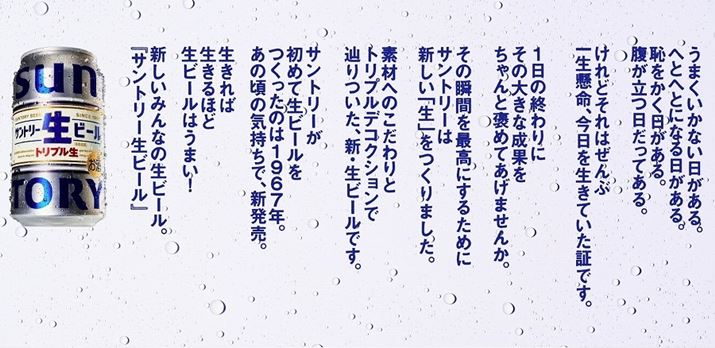 うまくいかない日がある。
へとへとになる日がある。
恥をかく日がある。
腹が立つ日だってある。
けれどそれはぜんぶ
一生懸命、今日を生きていた証です。
1日の終わりに
その大きな成果を
ちゃんと褒めてあげませんか。
その瞬間を最高にするために
サントリーは
新しい「生」をつくりました。
素材へのこだわりと
トリプルデコクションで
辿りついた、新・生ビールです。
サントリーが
初めて生ビールを
つくったのは1967年。
あの頃の気持ちで、新発売。
生きれば
生きるほど
生ビールはうまい!
新しいみんなの生ビール。
『サントリー生ビール』
sun
サントリー生ビール
トリプル生
TORY